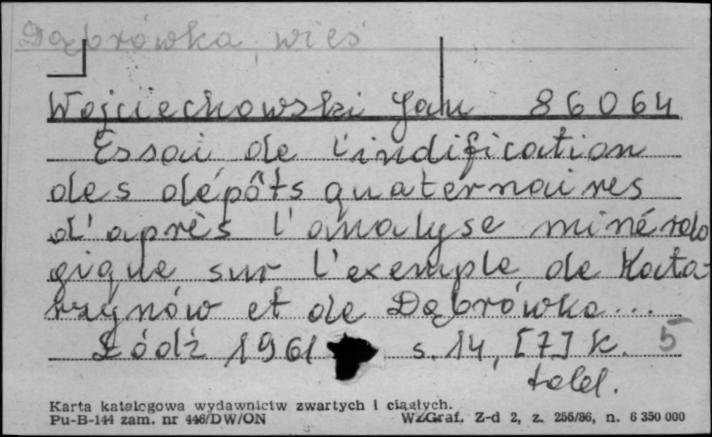 Dąbrówka, wieś
Wojciechowski Jan 86064
Essai de l'indification
des dépôts quaternaires
d'après l'analyse minéralo
gique sur l'exemple de Kata-
rzynów et de Dąbrówka...
Łódź 1961 s. 14, [7] k. 5
tabl.
Karta katalogowa wydawnictw zwartych i ciągłych.
Pu-B-144 zam. nr 446/DW/ON WZGraf. Z-d 2, z. 256/86, n. 6 350 000